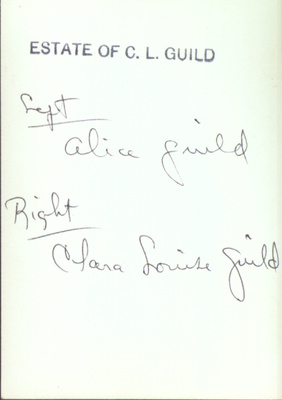 ESTATE OF C. L. GUILD
Left
Alice Guild
Right
Clara Louise Guild